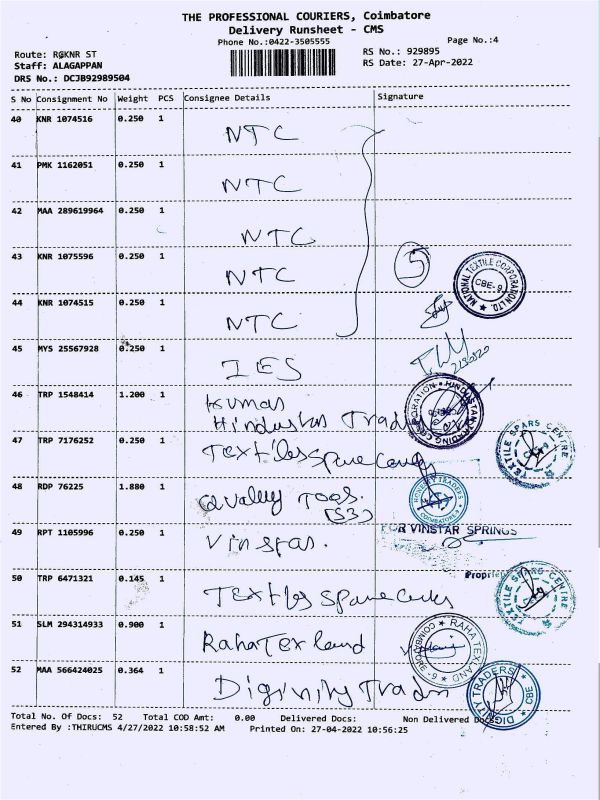 THE PROFESSIONAL COURIERS, Coimbatore
Delivery Runsheet - CMS
Phone No.:0422-3505555 Page No.:4
Route: R@KNR ST RS No.: 929895
Staff: ALAGAPPAN RS Date: 27-Apr-2022
DRS No.: DCJB92989504
S No Consignment No Weight PCS Consignee Details Signature
40 KNR 1074516 0.250 1 NTC
41 PMK 1162051 0.250 1 NTC
42 MAA 289619964 0.250 1 NTC
43 KNR 1075596 0.250 1 NTC 5
NATIONAL TEXTILE CORPORATION LTD. CBE-9
44 KNR 1074515 0.250 1 NTC
45 MYS 25567928 0.250 1 IES
46 TRP 1548414 1.200 1 Kumas
Hindustas Trad
HINDUSTAN TRADING CORPORATION
47 TRP 7176252 0.250 1 Textiles Spare
TEXTILE SPARS CENTRE
48 RDP 76225 1.880 1 Quality Toos.
(S3)
TRADERS COIMBATORE
49 RPT 1105996 0.250 1 Vinstas.
FOR VINSTAR SPRINGS
Propri
50 TRP 6471321 0.145 1 Textiles Spare
TEXTILE SPARS CENTRE
51 SLM 294314933 0.900 1 Raha Texland
RAHA TEXLAND COIMBATORE-6
52 MAA 566424025 0.364 1 Diginity Trades
DIGNITY TRADERS CBE
Total No. Of Docs: 52 Total COD Amt: 0.00 Delivered Docs: Non Delivered Docs:
Entered By :THIRUCMS 4/27/2022 10:58:52 AM Printed On: 27-04-2022 10:56:25